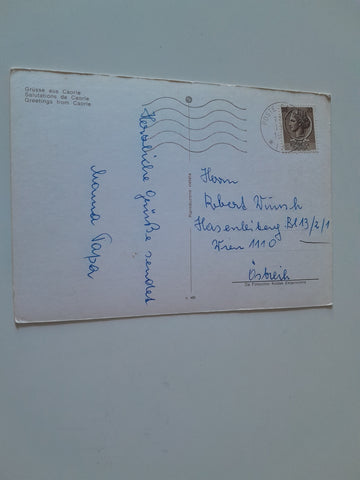 Grüsse aus Caorle
Salutations de Caorle
Greetings from Caorle
Herzliche Grüße sendet
Mama Papa
Herrn
Robert Wunsch
Hasenleiteng. Bl 13/2/1
Wien 1110
Östreih